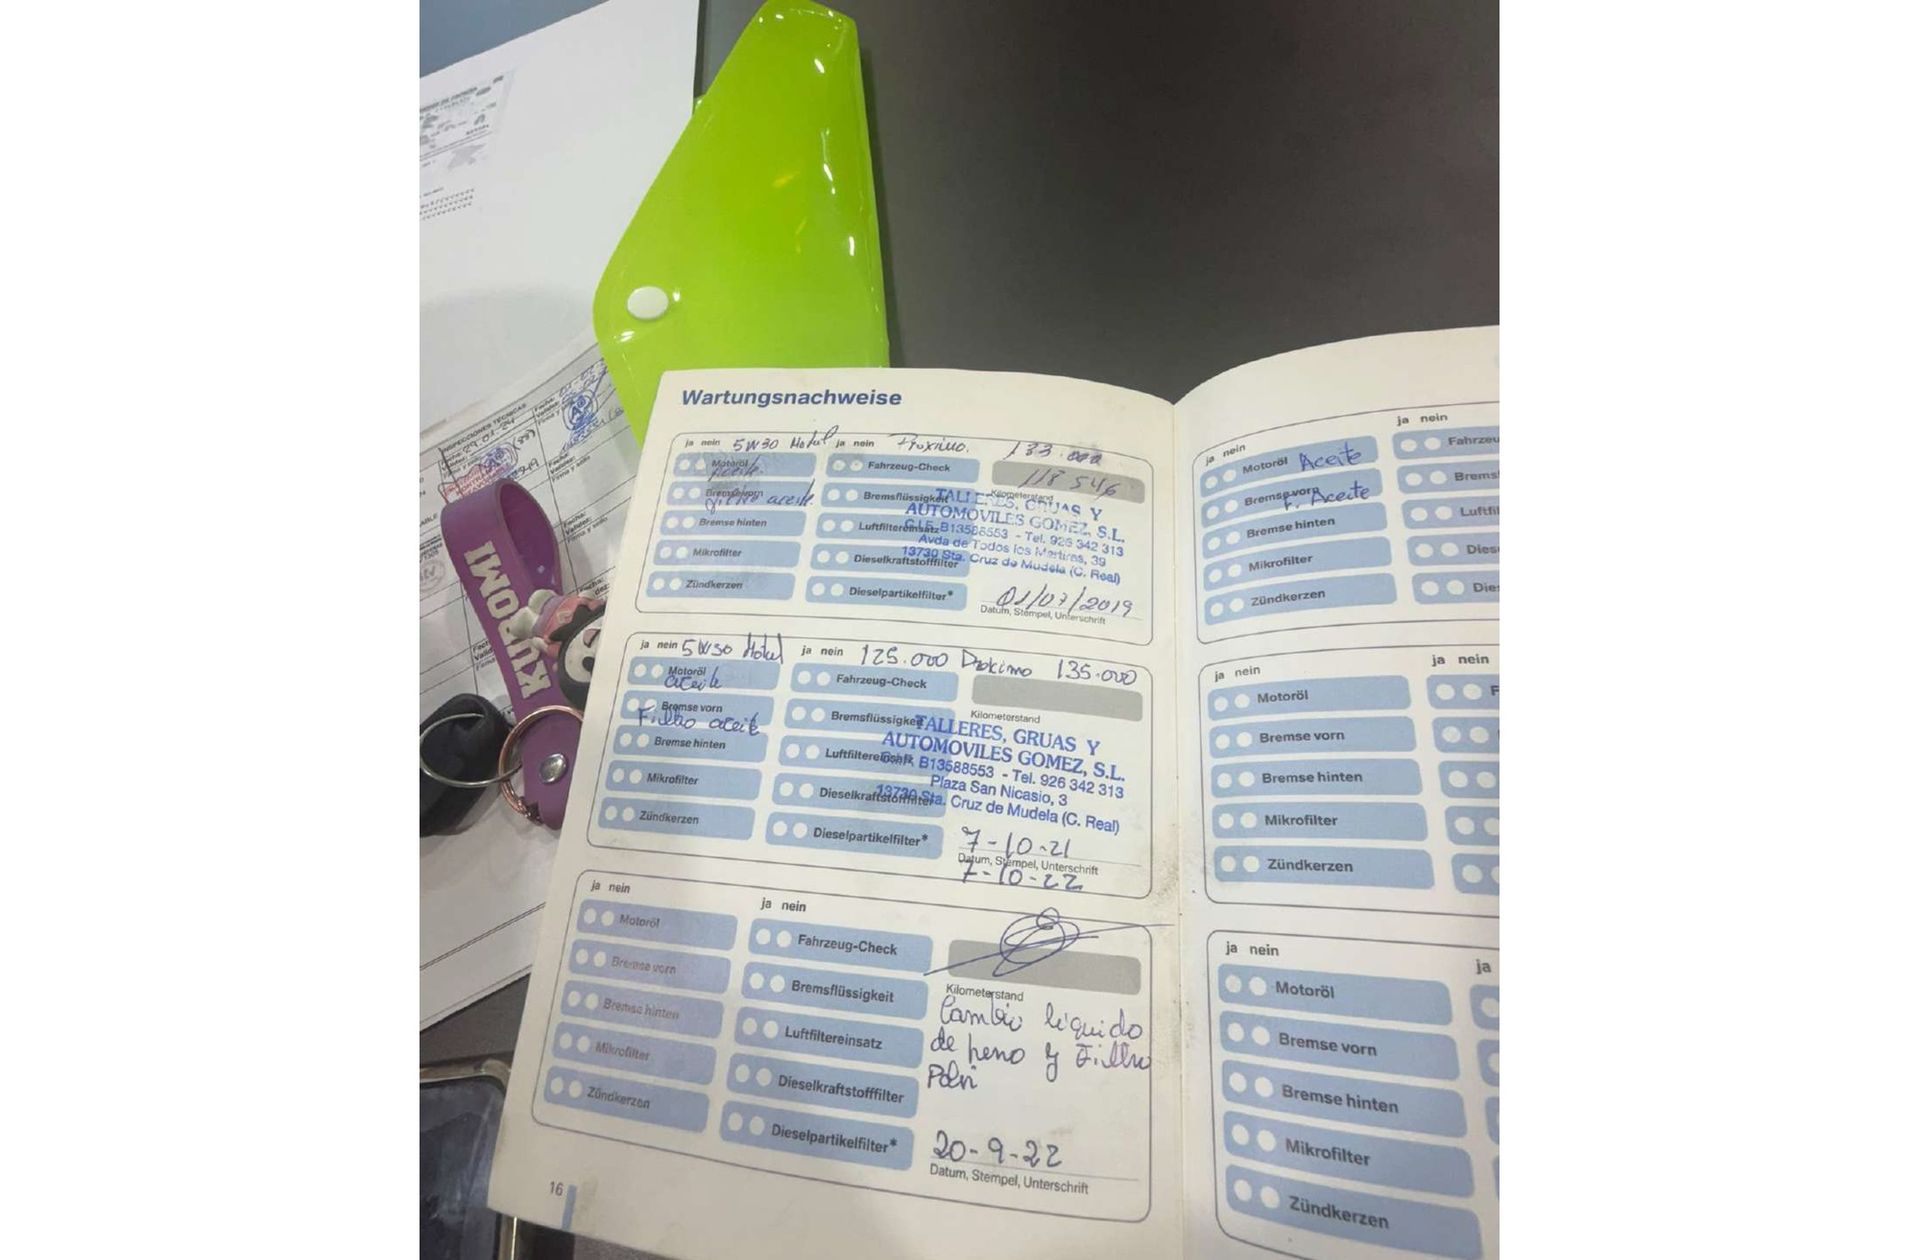 Wartungsnachweise
ja nein 5W30 Motul ja nein Proximo. 133.000
Motoröl Fahrzeug-Check 118 546
Aceite
Bremse vorn Bremsflüssigkeit Kilometerstand
filtro aceite
Bremse hinten Luftfiltereinsatz
Mikrofilter Dieselkraftstofffilter
Zündkerzen Dieselpartikelfilter*
TALLERES, GRUAS Y
AUTOMOVILES GOMEZ, S.L.
C.I.F. B13588553 - Tel. 926 342 313
Avda de Todos los Martires, 39
13730 Sta. Cruz de Mudela (C. Real)
01/07/2019
Datum, Stempel, Unterschrift
ja nein 5W30 Motul ja nein 125.000 Proximo 135.000
Motoröl Fahrzeug-Check
aceite
Bremse vorn Bremsflüssigkeit Kilometerstand
Filtro aceite
Bremse hinten Luftfiltereinsatz
Mikrofilter Dieselkraftstofffilter
Zündkerzen Dieselpartikelfilter*
TALLERES, GRUAS Y
AUTOMOVILES GOMEZ, S.L.
C.I.F. B13588553 - Tel. 926 342 313
Plaza San Nicasio, 3
13730 Sta. Cruz de Mudela (C. Real)
7-10-21
Datum, Stempel, Unterschrift
7-10-22
ja nein ja nein
Motoröl Fahrzeug-Check
Bremse vorn Bremsflüssigkeit Kilometerstand
Bremse hinten Luftfiltereinsatz
Mikrofilter Dieselkraftstofffilter
Zündkerzen Dieselpartikelfilter*
Cambio liquido
de freno y Filtro
Polen
20-9-22
Datum, Stempel, Unterschrift
16
ja nein ja nein
Motoröl Aceite Fahrzeu
Bremse vorn Brems
F. Aceite
Bremse hinten Luftfil
Mikrofilter Dies
Zündkerzen Die
ja nein ja nein
Motoröl F
Bremse vorn
Bremse hinten
Mikrofilter
Zündkerzen
ja nein ja
Motoröl
Bremse vorn
Bremse hinten
Mikrofilter
Zündkerzen
KUROMI
INSPECCIONES TÉCNICAS